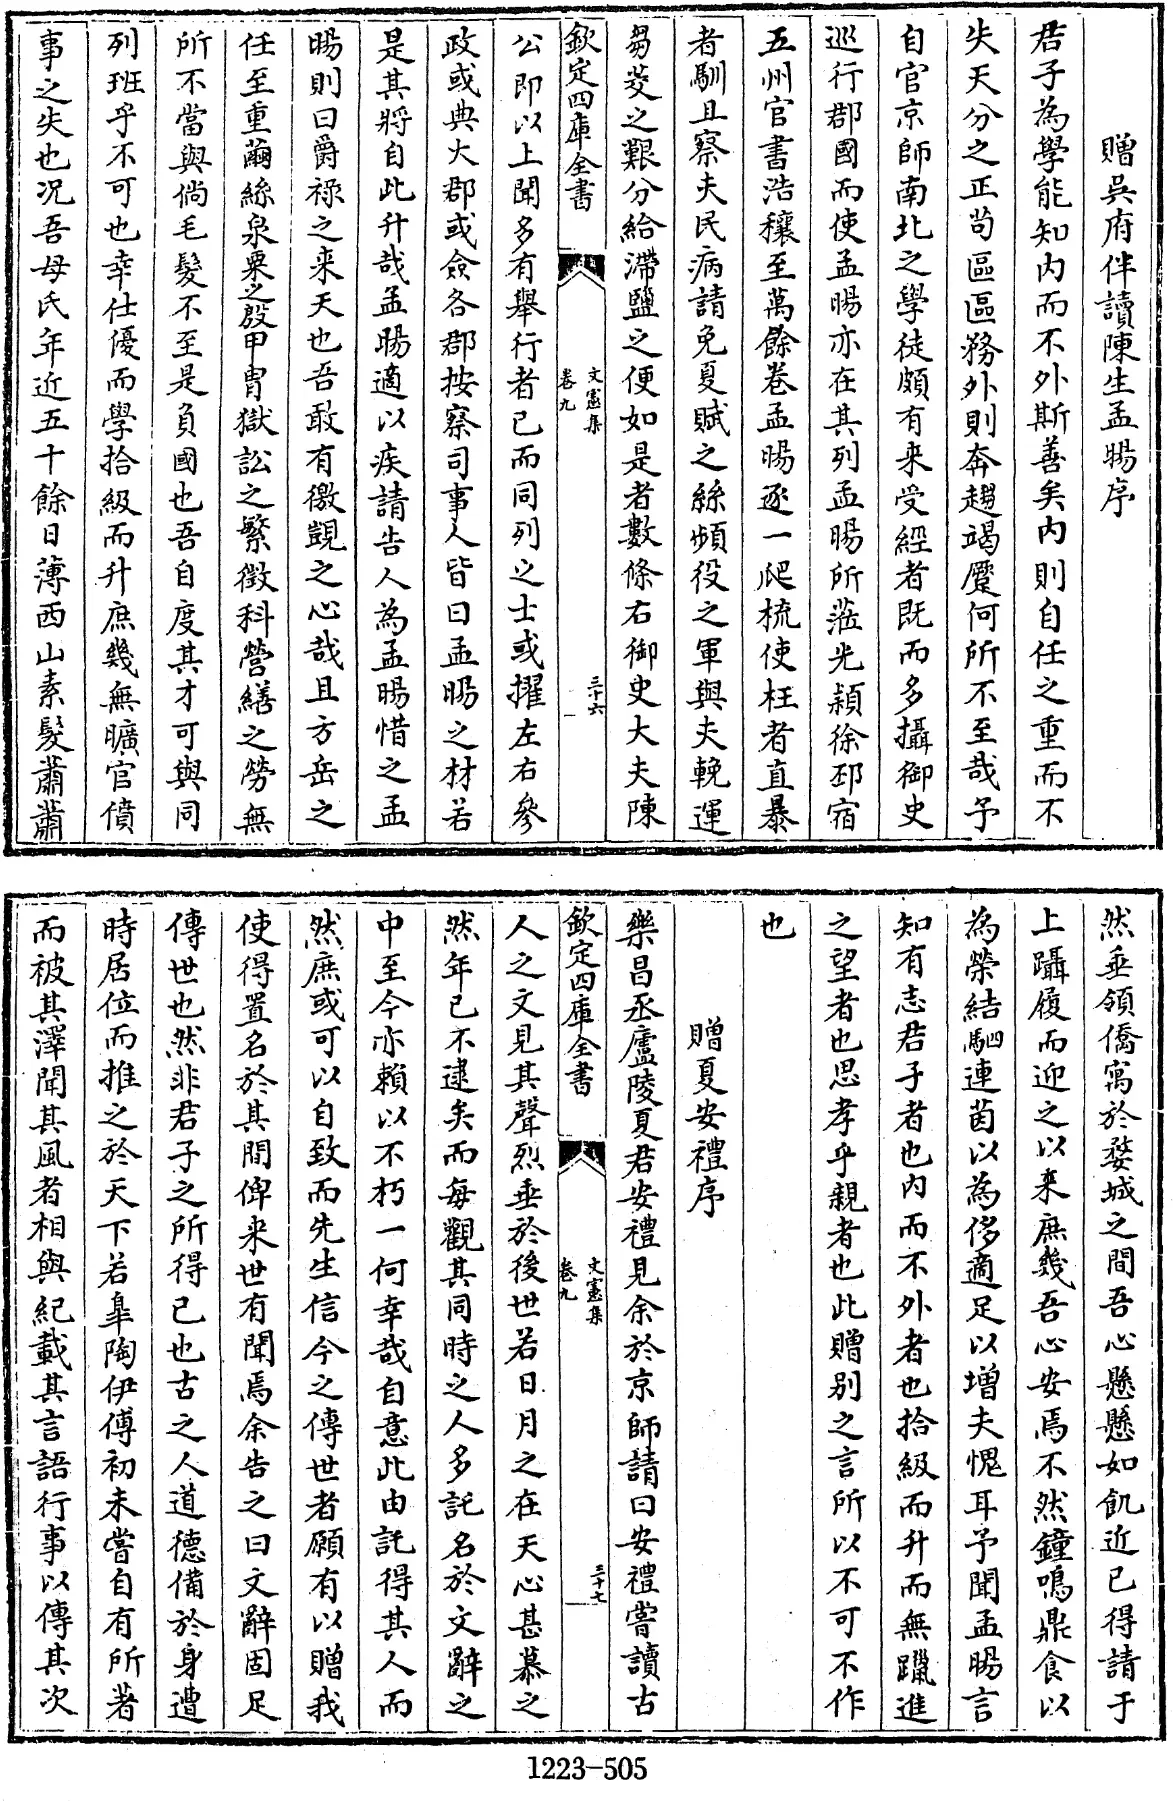 贈吳府伴讀陳生孟暘序
君子為學能知内而不外斯善矣内則自任之重而不
失天分之正苟區區務外則奔趨竭蹷何所不至哉予
自官京師南北之學徒頗有来受經者既而多攝御史
巡行郡國而使孟暘亦在其列孟暘所蒞光潁徐邳宿
五州官書浩穰至萬餘卷孟暘逐一爬梳使枉者直暴
者馴且察夫民病請免夏賦之絲頻役之軍與夫輓運
芻茭之艱分給滯鹽之便如是者數條右御史大夫陳
欽定四庫全書
文憲集
卷九
三十六
公即以上聞多有舉行者已而同列之士或擢左右參
政或典大郡或僉各郡按察司事人皆曰孟暘之材若
是其將自此升哉孟暘適以疾請告人為孟暘惜之孟
暘則曰爵祿之来天也吾敢有徼覬之心哉且方岳之
任至重繭絲泉粟之殷甲胄獄訟之繁徵科營繕之勞無
所不當與倘毛髮不至是負國也吾自度其才可與同
列班乎不可也幸仕優而學拾級而升庶幾無曠官僨
事之失也况吾母氏年近五十餘日薄西山素髮蕭蕭
然垂領僑寓於婺城之間吾心懸懸如飢近已得請于
上躡履而迎之以来庶幾吾心安焉不然鐘鳴鼎食以
為榮結駟連茵以為侈適足以增夫愧耳予聞孟暘言
知有志君子者也内而不外者也拾級而升而無躐進
之望者也思孝乎親者也此贈别之言所以不可不作
也
贈夏安禮序
樂昌丞廬陵夏君安禮見余於京師請曰安禮嘗讀古
欽定四庫全書
文憲集
卷九
三十七
人之文見其聲烈垂於後世若日月之在天心甚慕之
然年已不逮矣而每觀其同時之人多託名於文辭之
中至今亦賴以不朽一何幸哉自意此由託得其人而
然庶或可以自致而先生信今之傳世者願有以贈我
使得置名於其間俾来世有聞焉余告之曰文辭固足
傳世也然非君子之所得已也古之人道德備於身遭
時居位而推之於天下若臯陶伊傅初未嘗自有所著
而被其澤聞其風者相與紀載其言語行事以傳其次
1223-505